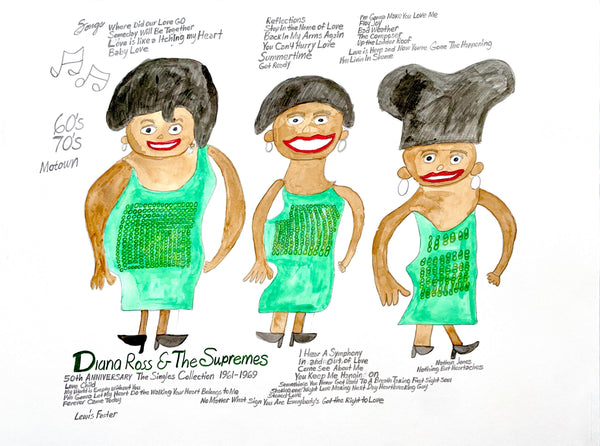 Songs
Where Did our Love GO
Someday Will Be Together
Love is like a Itching my Heart
Baby Love
Reflections
Stop In the Name of Love
Back In My Arms Again
You Can't Hurry Love
Summertime
Get Ready
I'm Gonna Make You Love Me
Bad Weather
The Composer
Up the Ladder Roof
Love is Here and Now You're Gone The Happening
I'm Livin In Shame
60's
70's
Motown
Diana Ross & The Supremes
50th ANNIVERSARY The Singles Collection 1961-1969
Love Child
My World is Empty Without You
I'm Gonna Let My Heart Do the Walking Your Heart Belongs to Me
Forever Came Today
No Matter What Sign You Are Everybody's Got the Right to Love
Lewis Foster
I Hear A Symphony
In and Out of Love
Come See About Me
You Keep Me Hangin' on
Stoned Love
Nathan Jones
Nothing But Heartaches